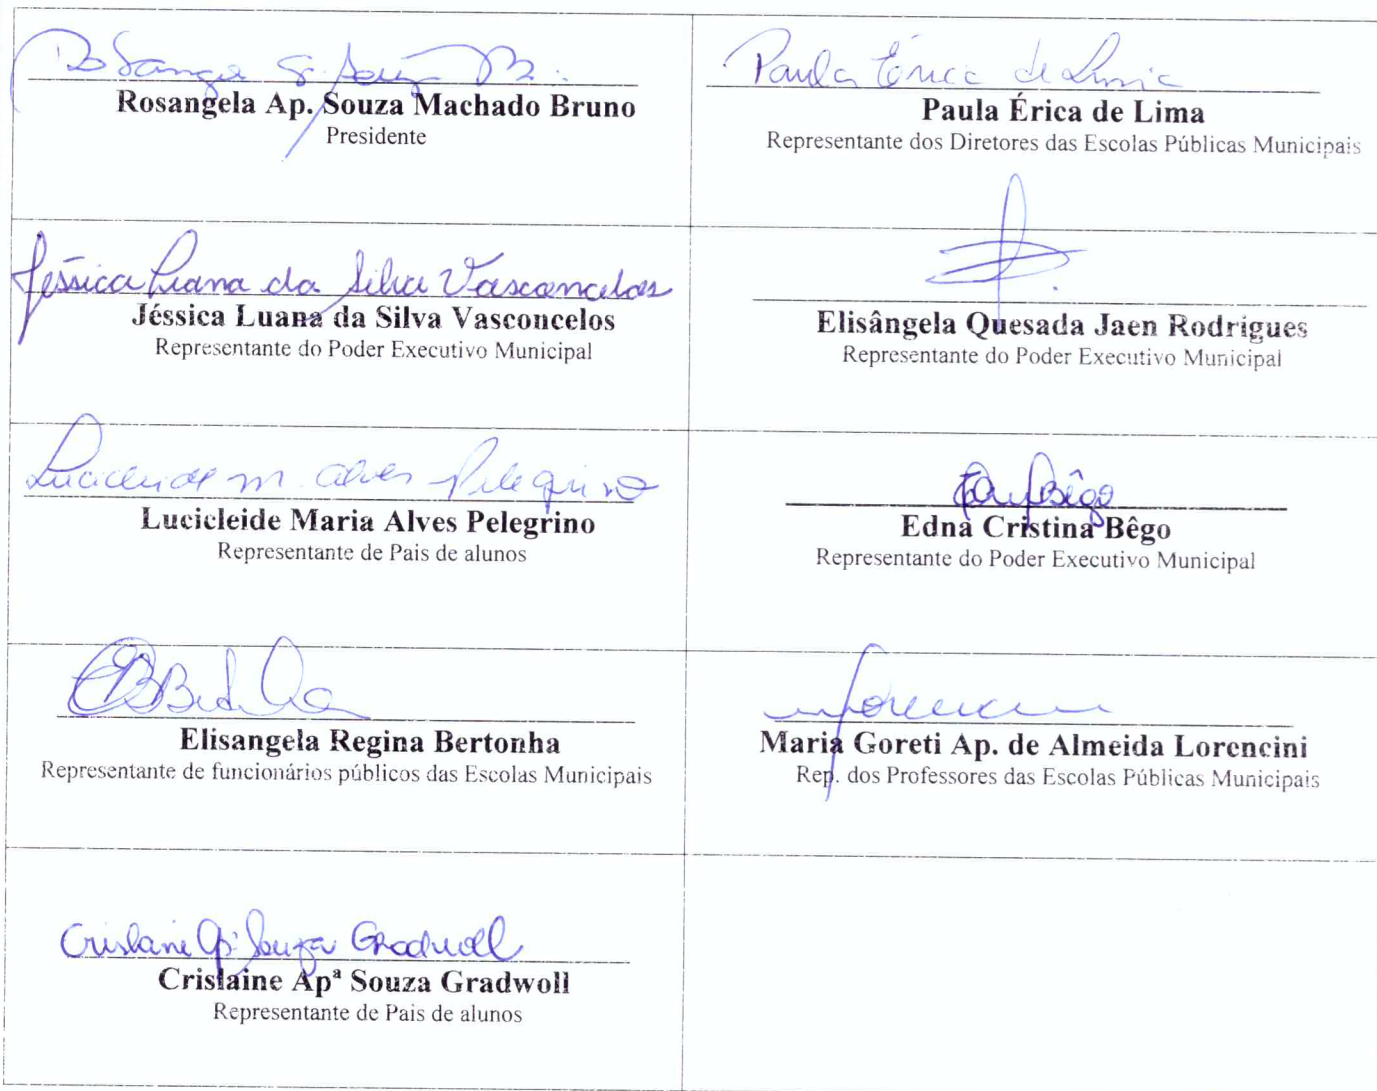 Rosangela Ap. Souza Machado Bruno
Presidente
Paula Érica de Lima
Paula Érica de Lima
Representante dos Diretores das Escolas Públicas Municipais
Jéssica Luana da Silva Vasconcelos
Jéssica Luana da Silva Vasconcelos
Representante do Poder Executivo Municipal
Elisângela Quesada Jaen Rodrigues
Representante do Poder Executivo Municipal
Lucicleide M. Alves Pelegrino
Lucicleide Maria Alves Pelegrino
Representante de Pais de alunos
Bêgo
Edna Cristina Bêgo
Representante do Poder Executivo Municipal
Elisangela Regina Bertonha
Representante de funcionários públicos das Escolas Municipais
Maria Goreti Ap. de Almeida Lorencini
Rep. dos Professores das Escolas Públicas Municipais
Crislaine Apª Souza Gradwoll
Crislaine Apª Souza Gradwoll
Representante de Pais de alunos